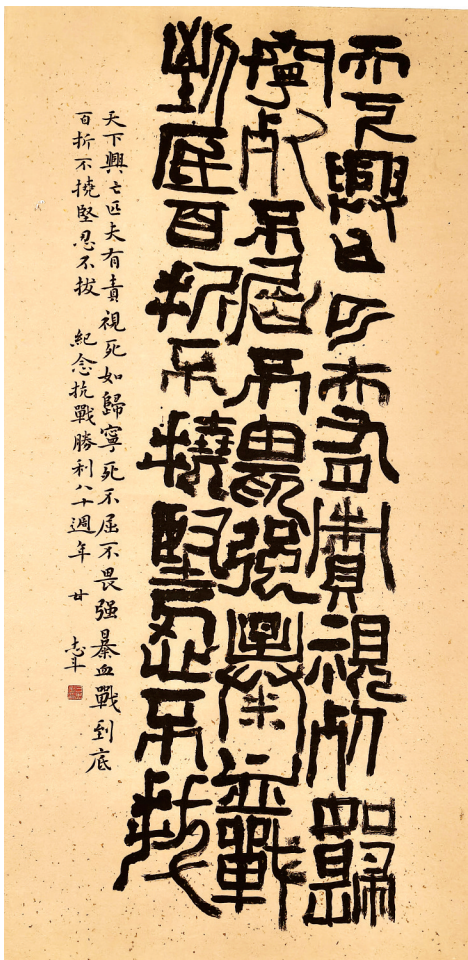 天下興亡匹夫有責視死如歸
寧死不屈不畏强暴血戰
到底百折不撓堅忍不拔
天下興亡匹夫有責視死如歸寧死不屈不畏强暴血戰到底
百折不撓堅忍不拔 紀念抗戰勝利八十週年 廿 志斗